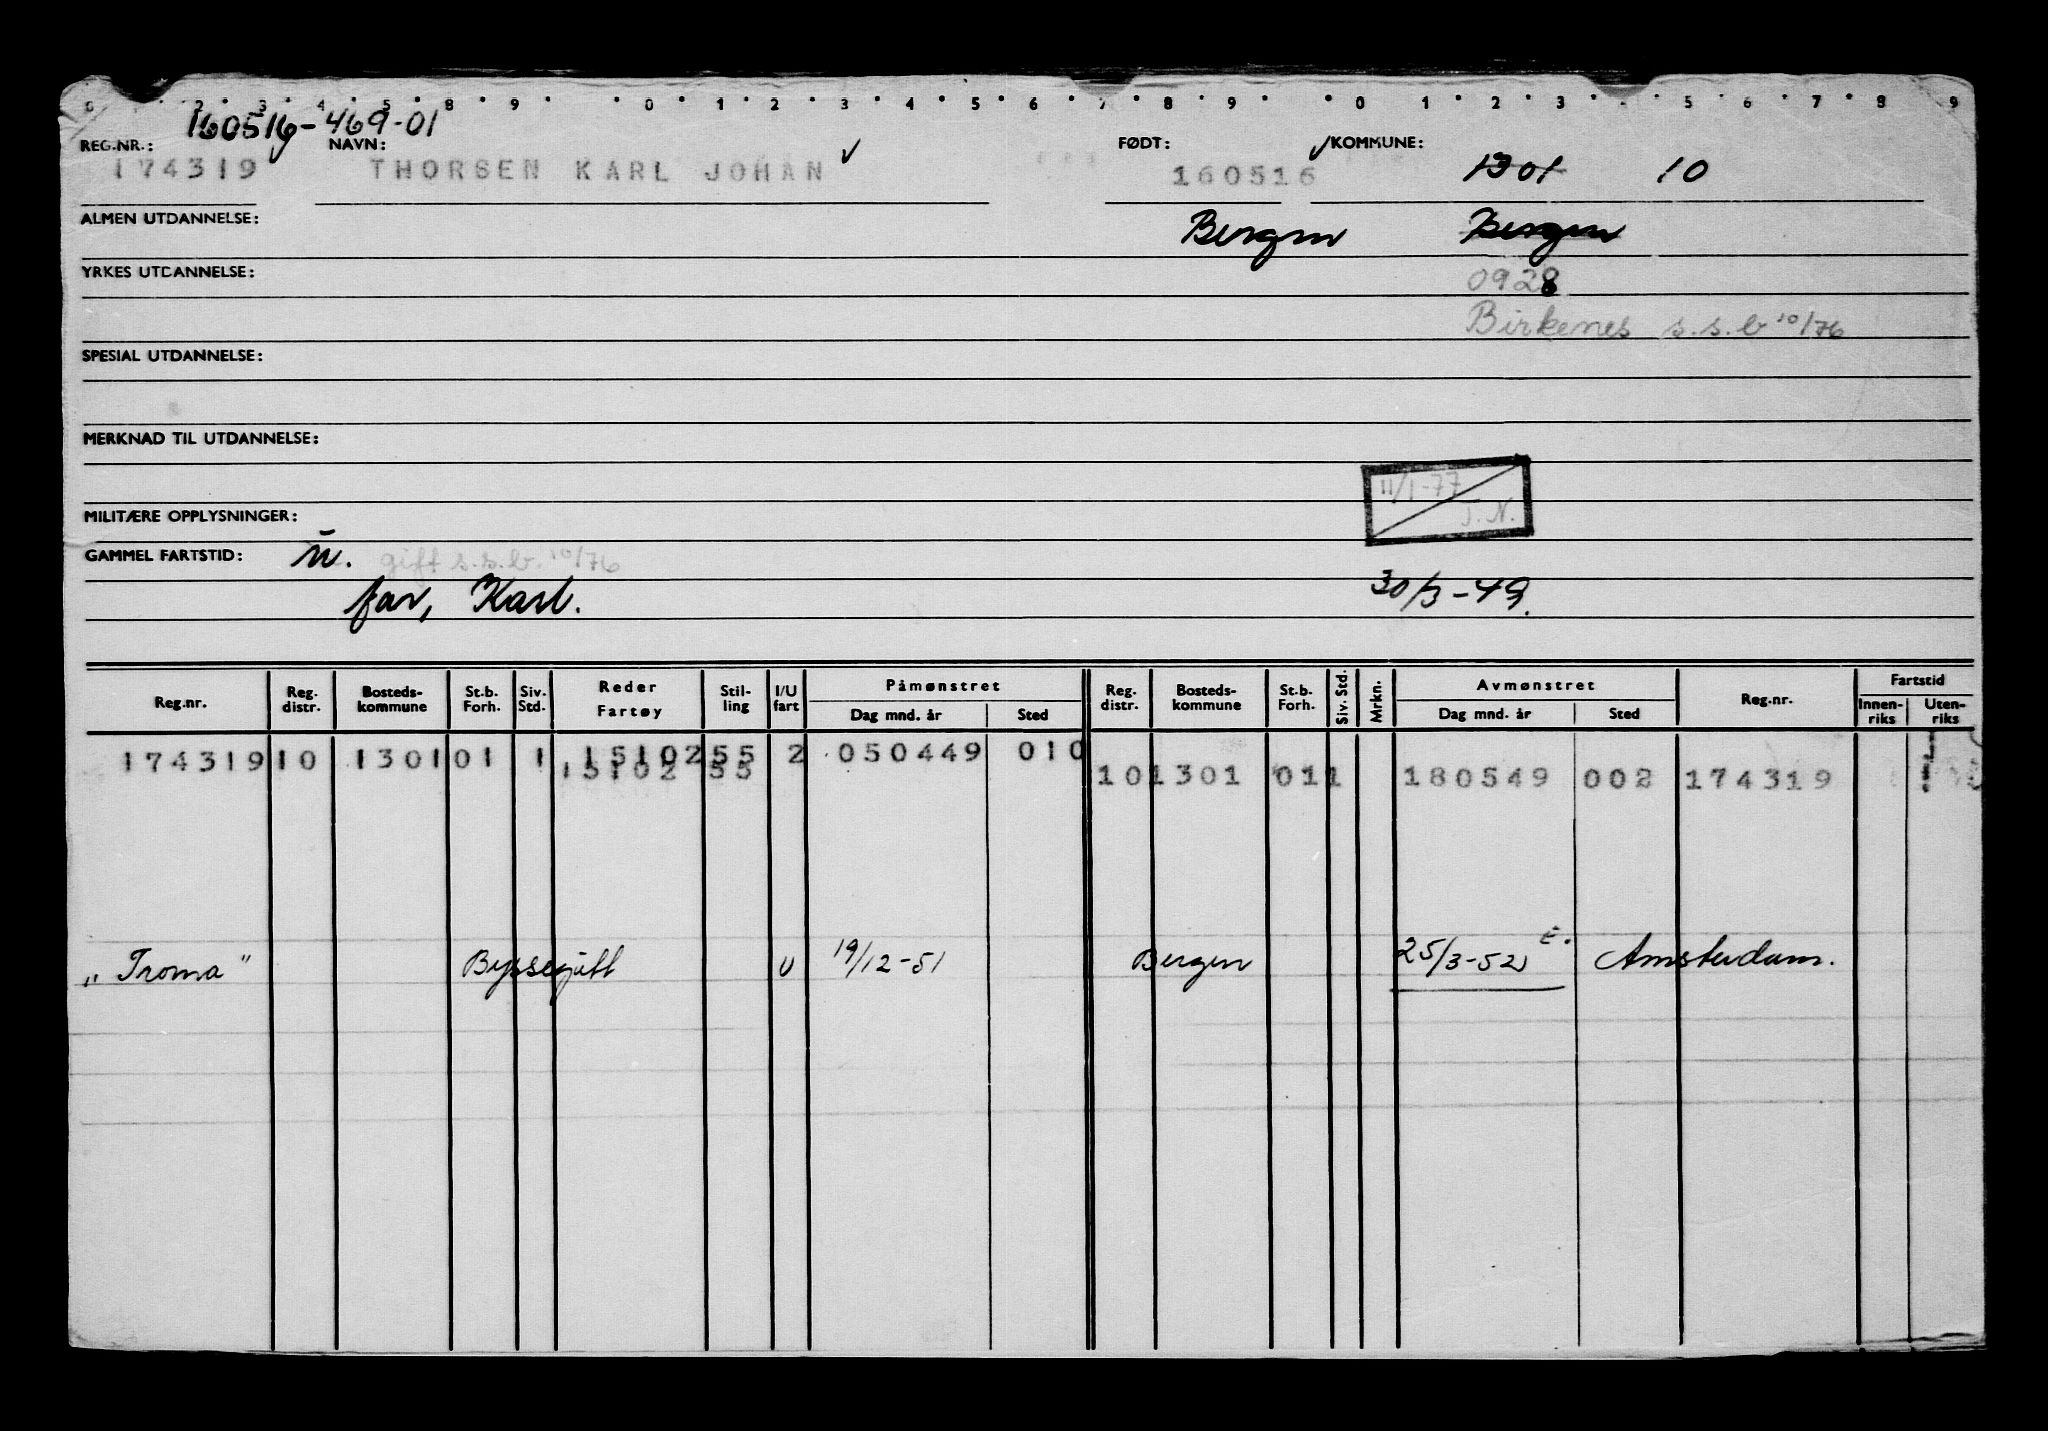 0 2 3 4 5 8 9 0 1 2 3 4 5 6 7 8 9 0 1 2 3 5 6 7 8 9
160516-469-01
REG.NR.: NAVN: FØDT: KOMMUNE:
174319 THORSEN KARL JOHAN 160516 1301 10
ALMEN UTDANNELSE: Bergen Bergen
YRKES UTDANNELSE: 0928
Birkenes s.s.b 10/76
SPESIAL UTDANNELSE:
MERKNAD TIL UTDANNELSE:
11/1-77
J.N.
MILITÆRE OPPLYSNINGER:
GAMMEL FARTSTID: u. gift s.s.b. 10/76
far, Karl. 30/3-49.
Reg.nr. Reg. distr. Bosteds- kommune St.b. Forh. Siv. Std. Reder Fartøy Stil- ling I/U fart Påmønstret Dag mnd. år Sted Reg. distr. Bosteds- kommune St.b. Forh. Siv. Std. Mrkn. Avmønstret Dag mnd. år Sted Reg.nr. Fartstid Innen- riks Uten- riks
174319 10 1301 01 1 15102 55 2 050449 010
15102 55 10 1301 01 1 180549 002 174319
"Troma" Byssegutt U 19/12-51 Bergen 25/3-52 E. Amsterdam.